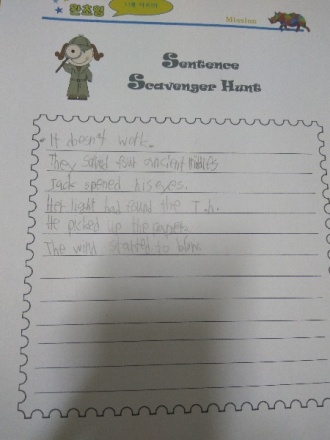 환초형
Mission
Sentence
Scavenger Hunt
It doesn't work.
They solved four ancient riddles
Jack opened his eyes.
Her light had found the T.h.
He picked up the paper.
The wind started to blow